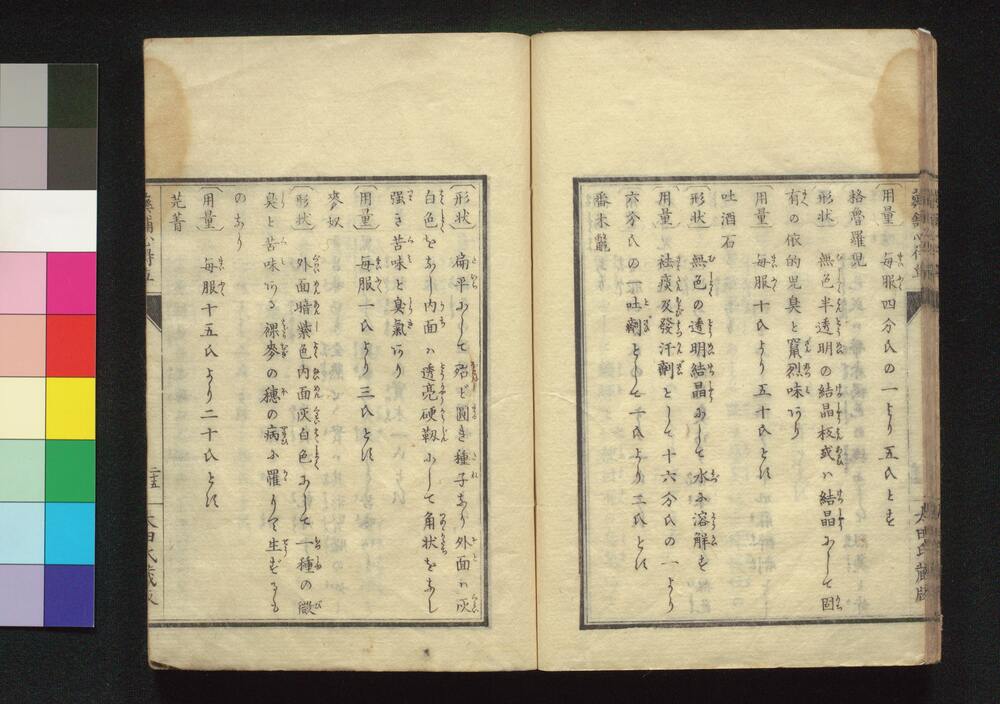 用量 毎服四分氏の一より五氏とす
格魯羅児
形状 無色半透明の結晶板或ハ結晶にして固
有の依的児臭と竄烈味あり
用量 毎服十氏より五十氏とす
吐酒石
形状 無色の透明結晶にして水に溶解す
用量 袪痰及發汗劑として十六分氏の一より
六分氏の一吐劑としてハ一氏より二氏とす
番木鼈
形状 扁平にして殆ど圓き種子なり外面ハ灰
白色をなし内面ハ透亮硬靱にして角状をなし
強き苦味と臭氣あり
用量 毎服一氏より三氏とす
麥奴
形状 外面暗紫色内面灰白色にして一種の黴
臭と苦味ある裸麥の穗の病に罹りて生ずるも
のなり
用量 毎服十五氏より二十氏とす
芫菁
太田氏蔵版